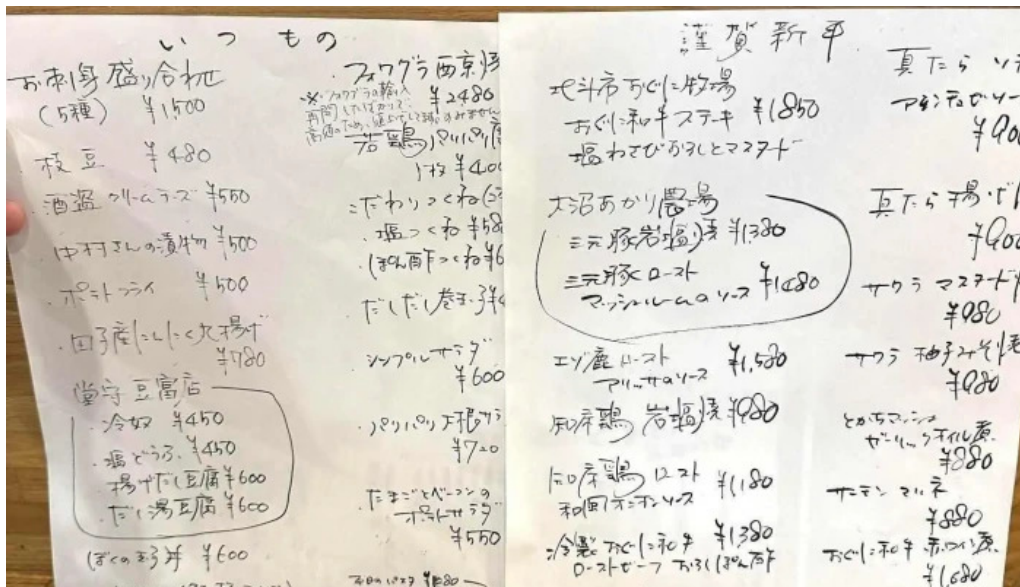 いつもの
お刺身盛り合わせ
(5種) ¥1,500
枝豆 ¥480
酒盗クリームチーズ ¥550
中村さんの漬物 ¥500
ポテトフライ ¥500
田子産にんにく丸揚げ
¥780
堂守豆富店
冷奴 ¥450
塩どうふ ¥450
揚げだし豆腐 ¥600
だし湯豆腐 ¥600
¥600
フォワグラ西京焼
※フォワグラの輸入
再開したばかりで
¥2480
パリパリ
1枚 ¥400
こだわりつくね
塩つくね ¥58
ぽん酢つくね ¥6
だしだし巻玉子 ¥4
シンプルサラダ
¥600
パリパリ大根サラ
¥720
たまごとベーコンの
ポテトサラダ
¥550
謹賀新年
北斗市おぐに牧場
おぐに和牛ステーキ ¥1850
塩わさびおろしとマスタード
大沼あかり農場
三元豚岩塩焼 ¥1380
三元豚ロースト
マッシュルームのソース ¥1480
エゾ鹿ロースト ¥1,580
アリッサのソース
知床鶏岩塩焼 ¥980
知床鶏ロースト ¥1180
和風オニオンソース
冷製おぐに和牛 ¥1380
ローストビーフ おろしぽん酢
真たら ソテ
¥900
真たら 揚げだし
¥900
サクラ マスタード
¥980
サクラ 柚子みそ焼
¥980
とかちマッシュ
ガーリックオイル煮
¥880
サーモン マリネ
¥880
おぐに和牛 赤ワイン煮
¥1,680